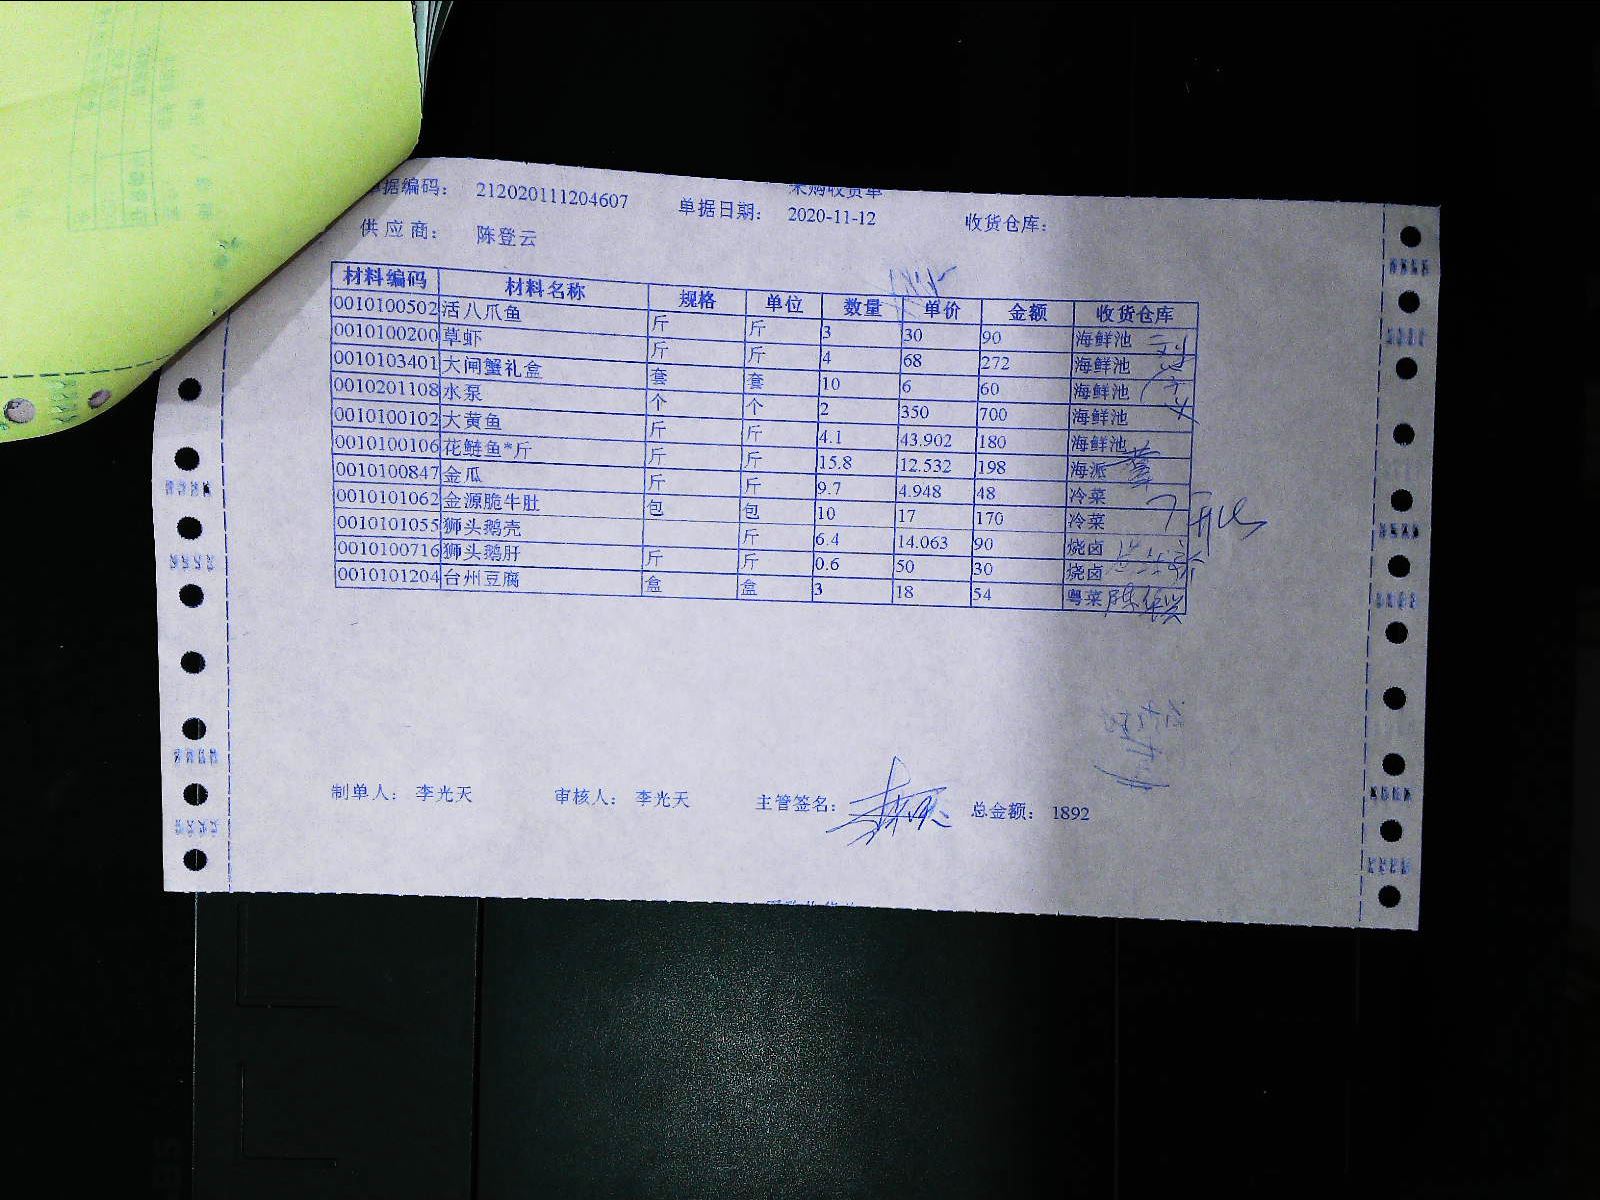 采购收货单
单据编码： 212020111204607 单据日期： 2020-11-12 收货仓库：
供应商： 陈登云
材料编码 材料名称 规格 单位 数量 单价 金额 收货仓库
0010100502 活八爪鱼 斤 斤 3 30 90 海鲜池
0010100200 草虾 斤 斤 4 68 272 海鲜池
0010103401 大闸蟹礼盒 套 套 10 6 60 海鲜池
0010201108 水泵 个 个 2 350 700 海鲜池
0010100102 大黄鱼 斤 斤 4.1 43.902 180 海鲜池
0010100106 花鲢鱼*斤 斤 斤 15.8 12.532 198 海派
0010100847 金瓜 斤 斤 9.7 4.948 48 冷菜
0010101062 金源脆牛肚 包 包 10 17 170 冷菜
0010101055 狮头鹅壳 斤 6.4 14.063 90 烧卤
0010100716 狮头鹅肝 斤 斤 0.6 50 30 烧卤
0010101204 台州豆腐 盒 盒 3 18 54 粤菜
制单人： 李光天 审核人： 李光天 主管签名： 总金额： 1892